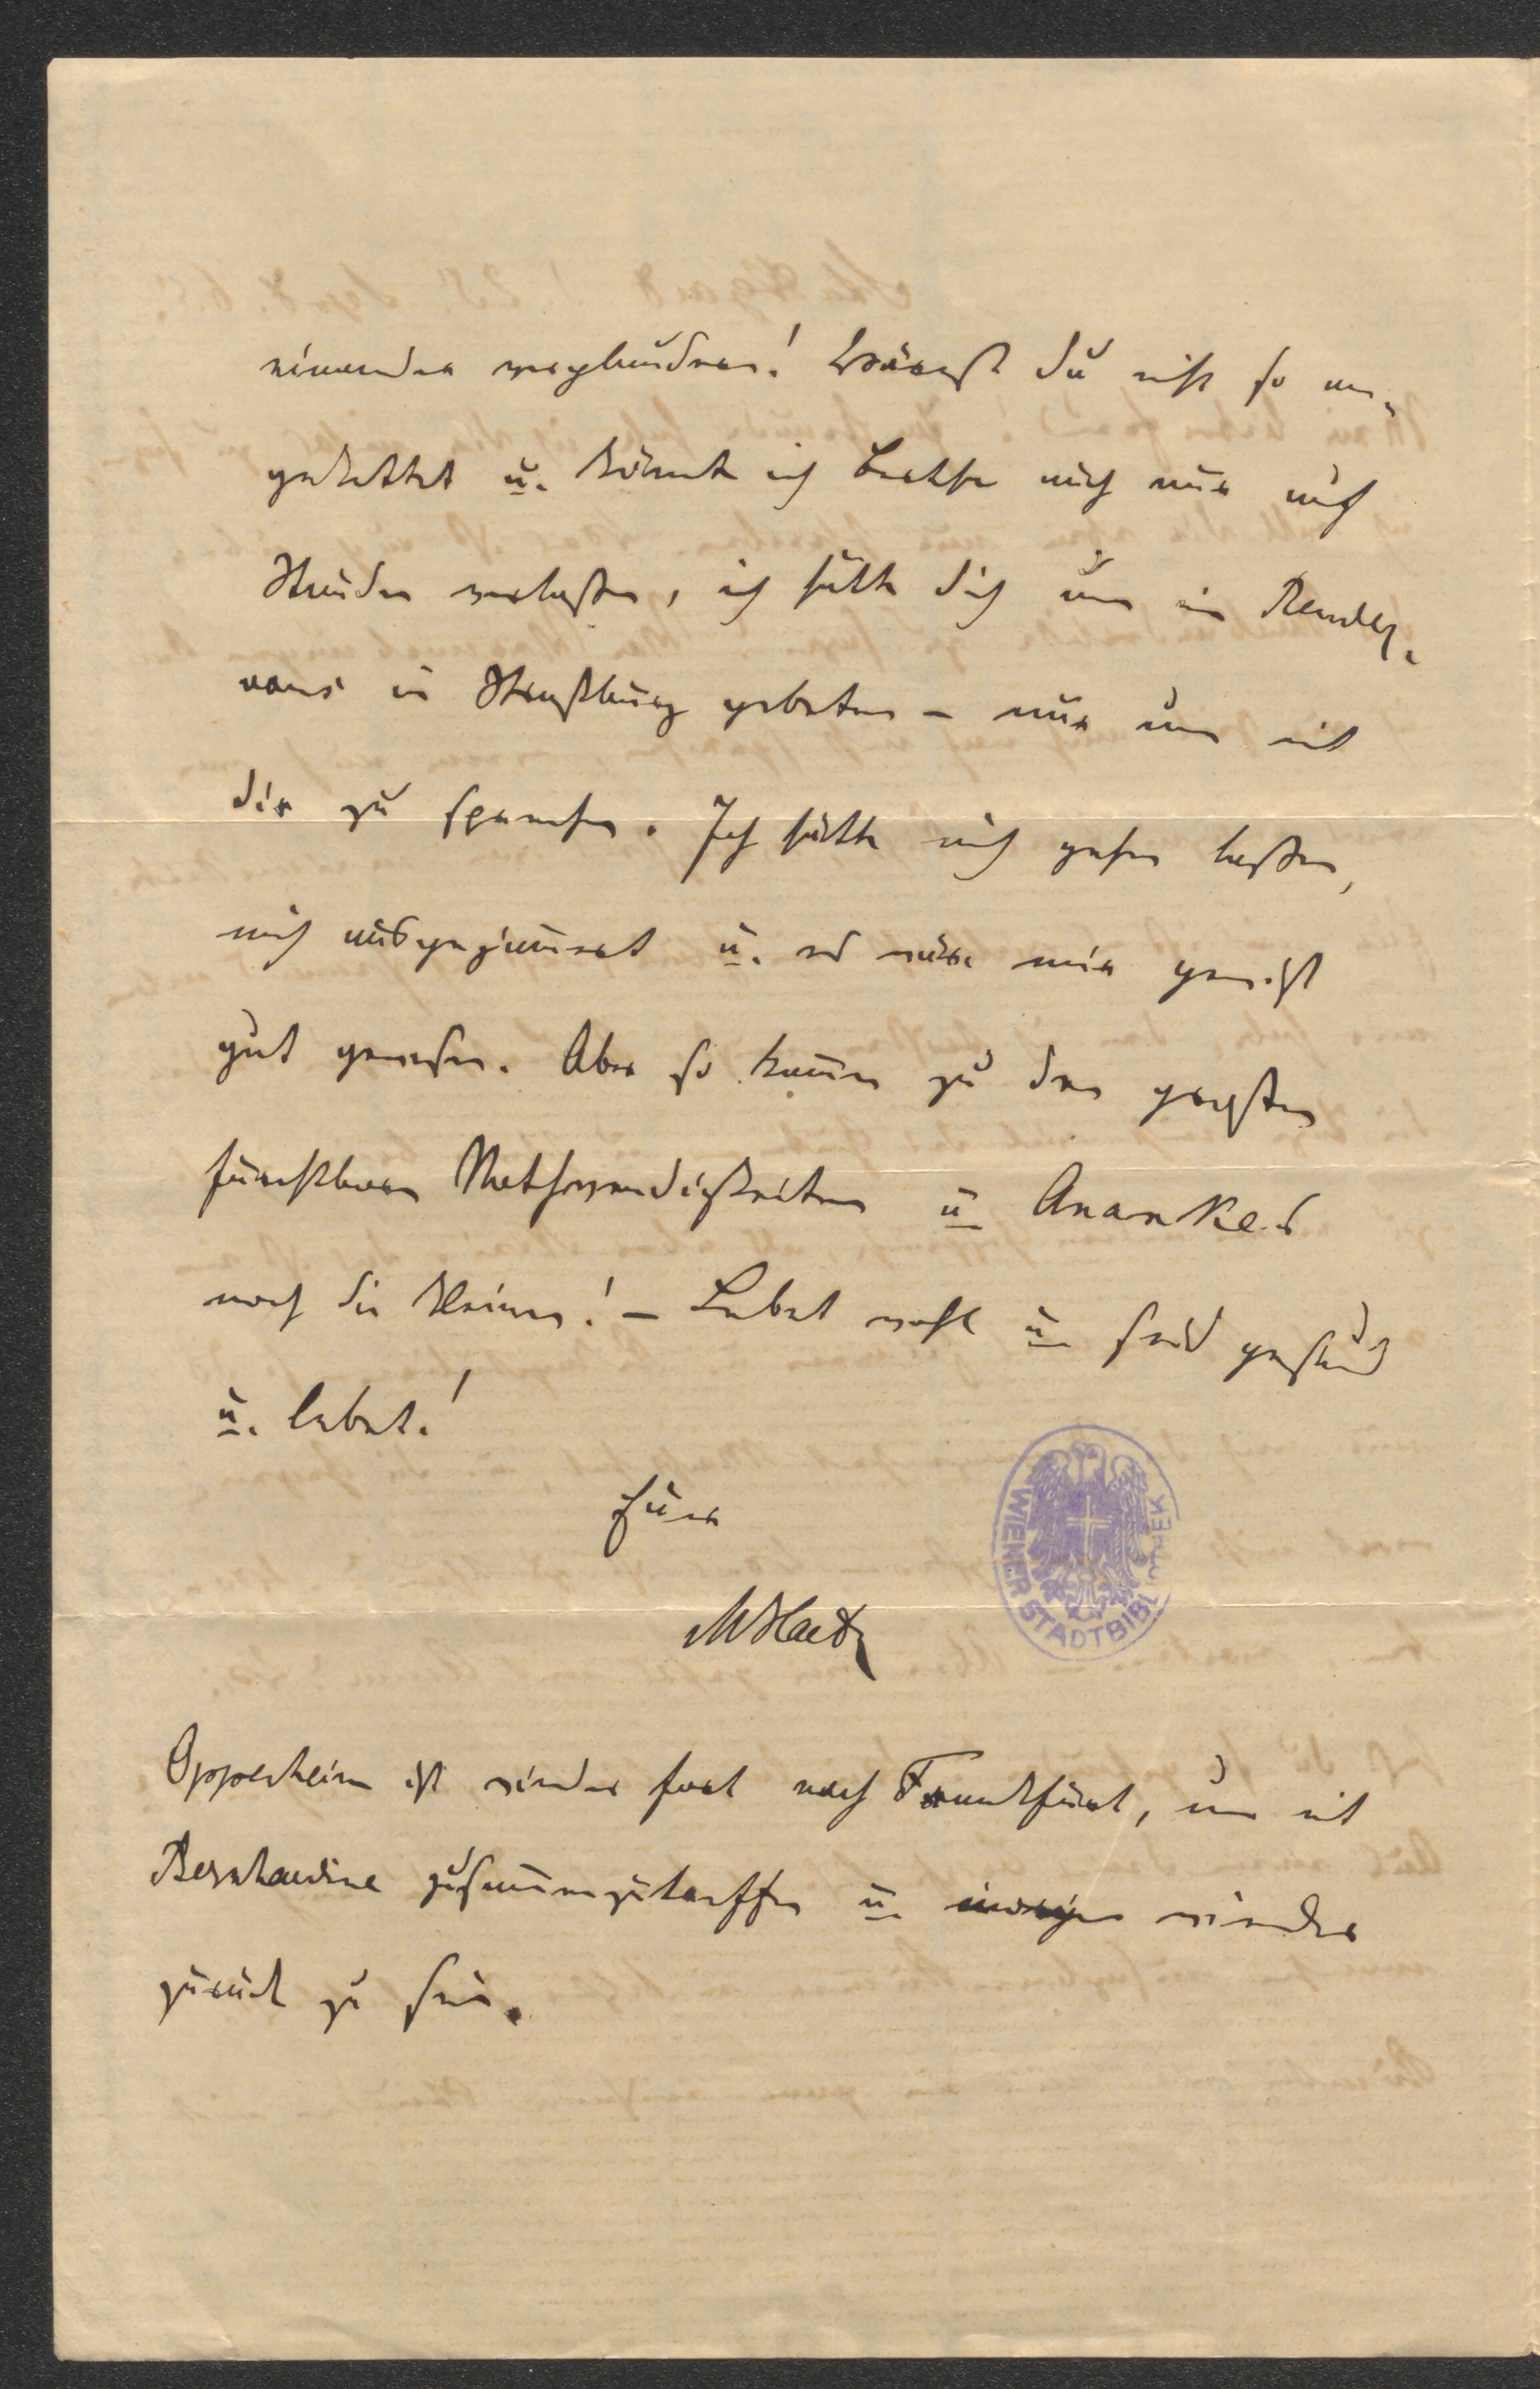 einander vergleichen! Wärest du nicht so an-
gekettet u. könnte ich Berthe auch nur auf
Stunden verlassen, ich hätte dich um ein Rendez-
vous in Straßburg gebeten – nur um mit
dir zu sprechen. Ich hätte mich gehen lassen,
mich ausgejammert u. es wäre mir gewiß
gut gewesen. Aber so kamen zu den großen
furchtbaren Nothwendigkeiten u Anankes
noch die kleinen! – Lebet wohl u seid gesund
u. lebet!
Euer
MHartm
Oppenheim ist wieder fort nach Frankfurt, um mit
Bernhardine zusammenzutreffen u. wieder
zurück zu sein.
WIENER STADTBIBLIOTHEK